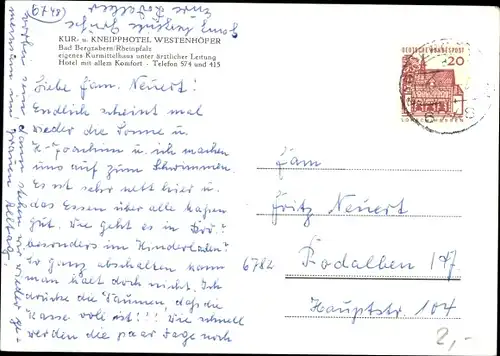 KUR- u. KNEIPPHOTEL WESTENHÖFER
Bad Bergzabern/Rheinpfalz
eigenes Kurmittelhaus unter ärztlicher Leitung
Hotel mit allem Komfort · Telefon 574 und 415
Liebe Fam. Neuert!
Endlich scheint mal
wieder die Sonne u.
H-Joachim u. ich machen
uns auf zum Schwimmen.
Es ist sehr nett hier u.
das Essen über alle
gut. Wie geht es in
besonders im Kinderladen?
So ganz abschalten kann
man halt doch nicht. Ich
drücke die Daumen, daß die
Kasse voll ist!!! Wie schnell
werden die paar Tage noch
vorbei sein, dann stehen wir wieder
grauen Alltag.
Eure
DEUTSCHE BUNDESPOST
20
Fam
Fritz Neuert
6782 Rodalben
Hauptstr. 104
2,-